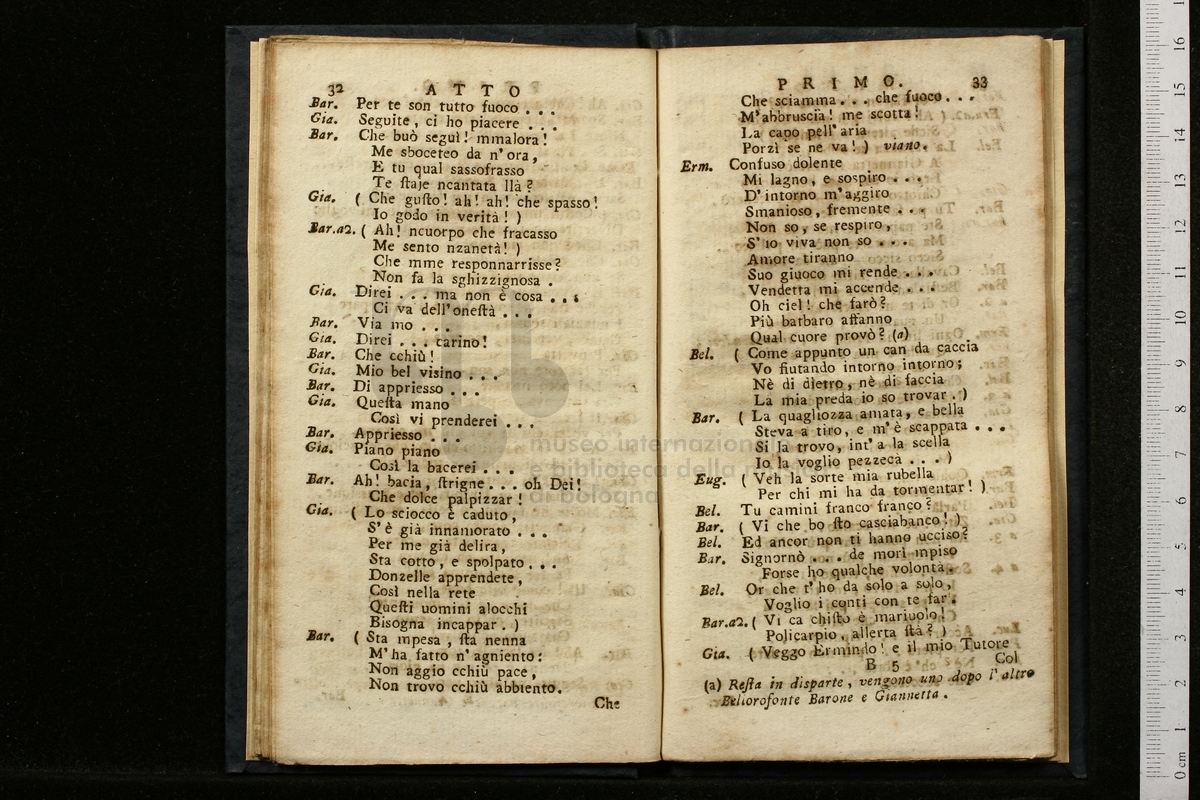 32 ATTO
Bar. Per te son tutto fuoco . . .
Gia. Seguite, ci ho piacere . . .
Bar. Che buò seguì! mmalora!
Me sboceteo da n'ora,
E tu qual sassofrasso
Te ſtaje ncantata llà?
Gia. ( Che guſto! ah! ah! che spasso!
Io godo in verità! )
Bar.a2. ( Ah! ncuorpo che fracasso
Me sento nzanetà! )
Che mme responnarrisse?
Non fa la sghizzignosa.
Gia. Direi . . . ma non è cosa . . .
Ci va dell'oneſtà . . .
Bar. Via mo . . .
Gia. Direi . . . carino!
Bar. Che cchiù!
Gia. Mio bel visino . . .
Bar. Di appriesso . . .
Gia. Queſta mano
Così vi prenderei . . .
Bar. Appriesso . . .
Gia. Piano piano
Così la bacerei . . .
Bar. Ah! bacia, ſtrigne . . . oh Dei!
Che dolce palpizzar!
Gia. ( Lo sciocco è caduto,
S'è già innamorato . . .
Per me già delira,
Sta cotto, e spolpato . . .
Donzelle apprendete,
Così nella rete
Queſti uomini alocchi
Bisogna incappar. )
Bar. ( Sta mpesa, ſta nenna
M'ha fatto n'agniento:
Non aggio cchiù pace,
Non trovo cchiù abbiento.
Che
PRIMO. 33
Che sciamma . . . che fuoco . . .
M'abbruscia! me scotta!
La capo pell'aria
Porzì se ne va! ) viano.
Erm. Confuso dolente
Mi lagno, e sospiro . . .
D'intorno m'aggiro
Smanioso, fremente . . .
Non so, se respiro,
S'io viva non so . . .
Amore tiranno
Suo giuoco mi rende . . .
Vendetta mi accende . . .
Oh ciel! che farò?
Più barbaro affanno
Qual cuore provò? (a)
Bel. ( Come appunto un can da caccia
Vo fiutando intorno intorno;
Nè di dietro, nè di faccia
La mia preda io so trovar. )
Bar. ( La quagliozza amata, e bella
Steva a tiro, e m'è scappata . . .
Si la trovo, int'a la scella
Io la voglio pezzecà . . . )
Eug. ( Veh la sorte mia rubella
Per chi mi ha da tormentar! )
Bel. Tu camini franco franco?
Bar. ( Vi che bo ſto casciabanco! )
Bel. Ed ancor non ti hanno ucciso?
Bar. Signornò . . . de morì mpiso
Forse ho qualche volontà.
Bel. Or che t'ho da solo a solo,
Voglio i conti con te far.
Bar.a2. ( Vi ca chiſto è mariuolo!
Policarpio, allerta ſtà? )
Gia. ( Veggo Ermindo! e il mio Tutore
B 5 Col
(a) Reſta in disparte, vengono uno dopo l'altro
Bellorofonte Barone e Giannetta.
museo internazion
e biblioteca della m
di bologna